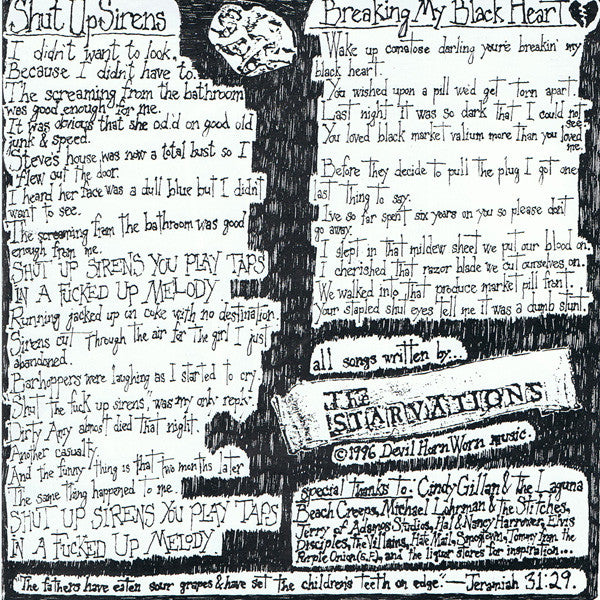 Shut Up Sirens
I didn't want to look.
Because I didn't have to.
The screaming from the bathroom
was good enough for me.
It was obvious that she od'd on good old
junk & speed.
Steve's house was now a total bust so I
flew out the door.
I heard her face was a dull blue but I didn't
want to see.
The screaming from the bathroom was good
enough from me.
SHUT UP SIRENS YOU PLAY TAPS
IN A FUCKED UP MELODY
Running jacked up on coke with no destination.
Sirens cut through the air for the girl I just
abandoned.
Barhoppers were laughing as I started to cry
"Shut the fuck up sirens" was my only reply
Dirty Amy almost died that night.
Another casualty.
And the funny thing is that two months later
the same thing happened to me.
SHUT UP SIRENS YOU PLAY TAPS
IN A FUCKED UP MELODY
Breaking My Black Heart
Wake up comatose darling you're breakin' my
black heart.
You wished upon a pill we'd get torn apart.
Last night it was so dark that I could not
see.
You loved black market valium more than you loved
me.
Before they decide to pull the plug I got one
last thing to say.
I've so far spent six years on you so please don't
go away.
I slept in that mildew sheet we put our blood on.
I cherished that razor blade we cut ourselves on.
We walked into that produce market pill front.
Your stapled shut eyes tell me it was a dumb stunt.
all songs written by...
THE
STARVATIONS
©1996 Devil Horn Worn music.
special thanks to: Cindy Gillan & the Laguna
Beach Creeps, Michael Lohrman & the Stitches,
Jerry of Adamos Studios, Hal & Nancy Harrower, Elvis
Disciples, the Villains, Hate Mail, Smogtown, Tommy from the
Purple Onion (s.f.), and the liquor stores for inspiration...
"The fathers have eaten sour grapes & have set the children's teeth on edge."—Jeramiah 31:29.